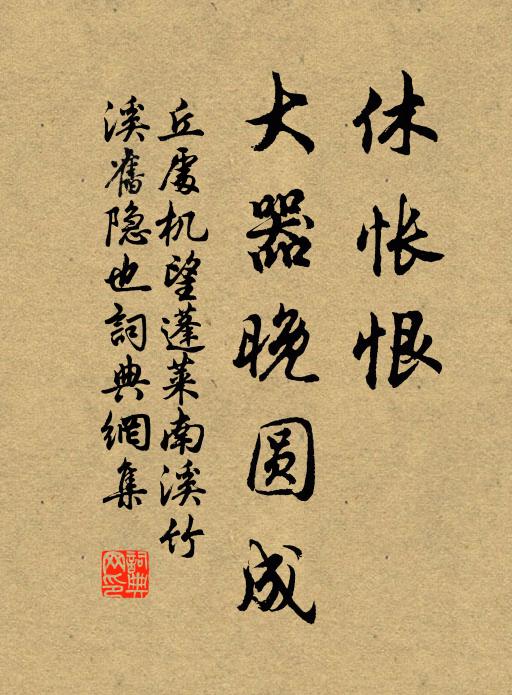 休怅恨
大器晚圆成
丘處机望蓬莱南溪竹
溪舊隐也詞典網集
詞典
网印